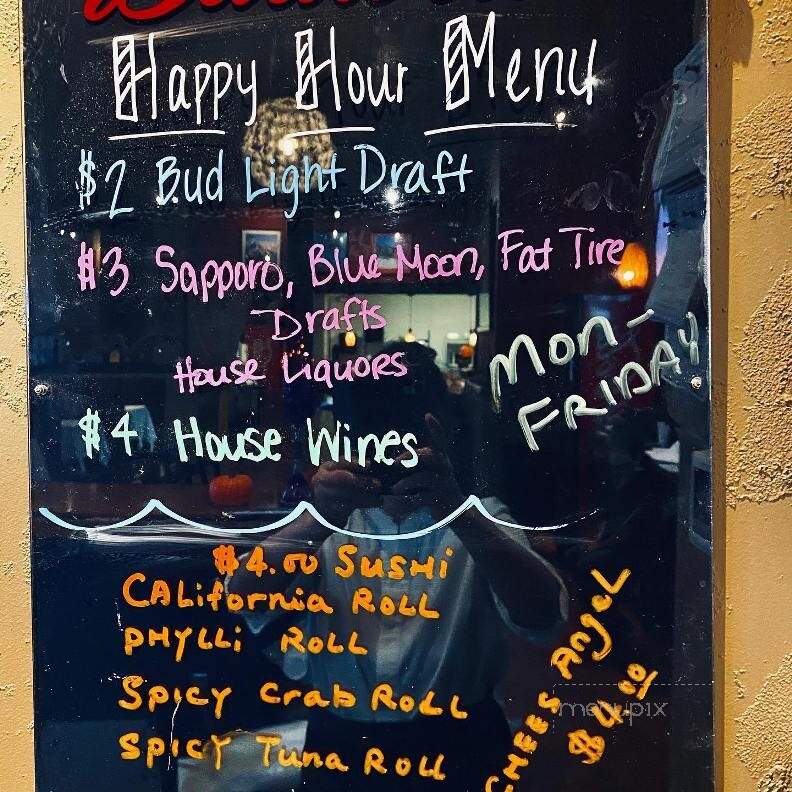 Happy Hour Menu
$2 Bud Light Draft
$3 Sapporo, Blue Moon, Fat Tire
Drafts
House Liquors
$4 House Wines
Mon-
FRIDAY
$4.00 SUSHi
CALifornia ROLL
PHYLLi ROLL
SPICY Crab ROLL
SPICY Tuna ROLL
CHEES Angel
$4.00
menupix